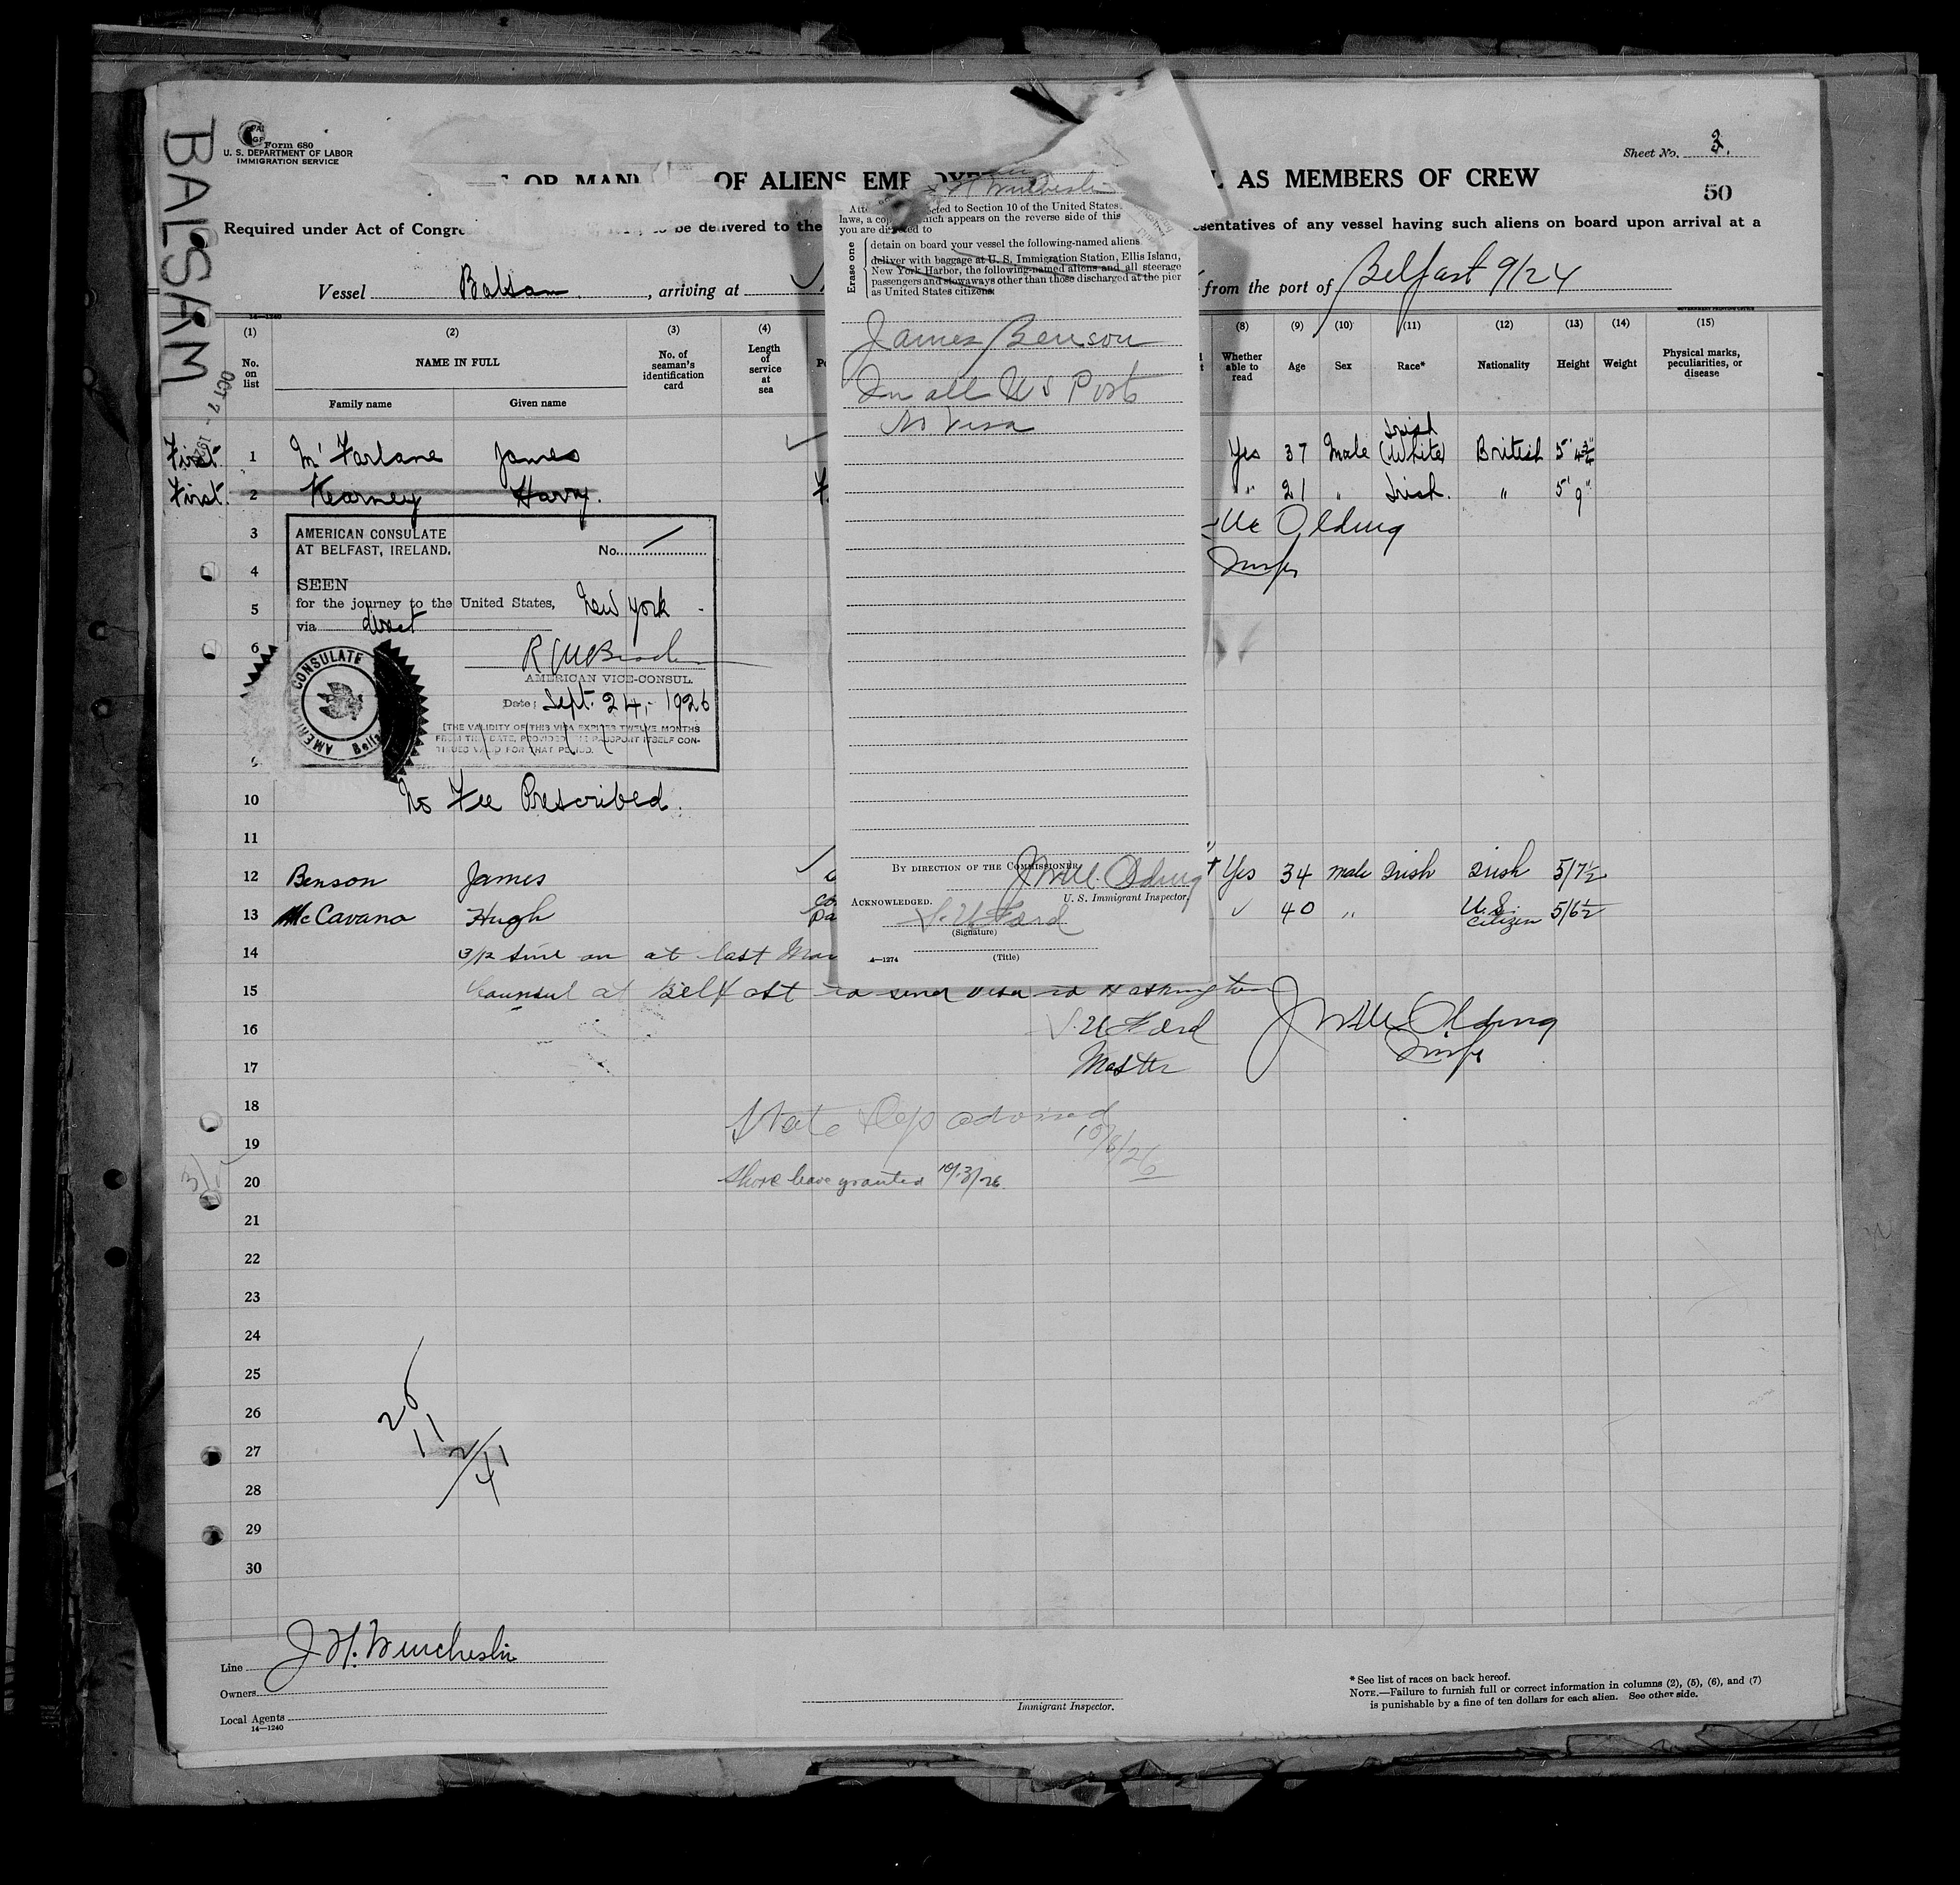 BALSAM
OCT 7 - 1926
Form 680
U. S. DEPARTMENT OF LABOR
IMMIGRATION SERVICE
Sheet No. 3.
50
OF ALIENS AS MEMBERS OF CREW
Required under Act of to be delivered to the sentatives of any vessel having such aliens on board upon arrival at a
Vessel Balsam, arriving at from the port of Belfast 9/24
14—1240
(1) (2) (3) (4) (8) (9) (10) (11) (12) (13) (14) (15)
No. on list
NAME IN FULL
Family name Given name
No. of seaman's identification card
Length of service at sea
Whether able to read
Age Sex Race* Nationality Height Weight
Physical marks, peculiarities, or disease
First 1 McFarlane James Yes 37 Male Irish (White) British 5' 4¾"
First. 2 Kearney Harry. " 21 " Irish. " 5' 9"
3 Olding
4 Insp
5
6
9
10
11
AMERICAN CONSULATE
AT BELFAST, IRELAND.
No. 1
SEEN
for the journey to the United States, New York
via direct
AMERICAN VICE-CONSUL.
Date: Sept. 24, 1926
[THE VALIDITY OF THIS VISA EXPIRES TWELVE MONTHS
FROM THIS DATE, PROVIDED THE PASSPORT ITSELF CON-
TINUES VALID FOR THAT PERIOD.
AMERICAN CONSULATE
No Fee Prescribed.
12 Benson James Yes 34 male Irish Irish 5/7½
13 McCavana Hugh 40 " U.S. Citizen 5/6½
14 on at last
15 at Belfast to send visa to Washington
16 Ford Olding
17 Master Insp
18 State Dep advised
19 10/8/26
20 Shore leave granted 10/13/26
21
22
23
24
25
26
27
28
29
30
26
11
41
Erase one
laws, a which appears on the reverse side of this
you are directed to
detain on board your vessel the following-named aliens
deliver with baggage at U. S. Immigration Station, Ellis Island,
New York Harbor, the following-named aliens and all steerage
passengers and stowaways other than those discharged at the pier
as United States citizens:
James Benson
In all US Ports
No Visa
BY DIRECTION OF THE COMMISSIONER
Olding
U. S. Immigrant Inspector.
ACKNOWLEDGED.
Ford
(Signature)
(Title)
4—1274
Line J H. Winchester
Owners
Local Agents
14—1240
Immigrant Inspector.
* See list of races on back hereof.
NOTE.—Failure to furnish full or correct information in columns (2), (5), (6), and (7)
is punishable by a fine of ten dollars for each alien. See other side.